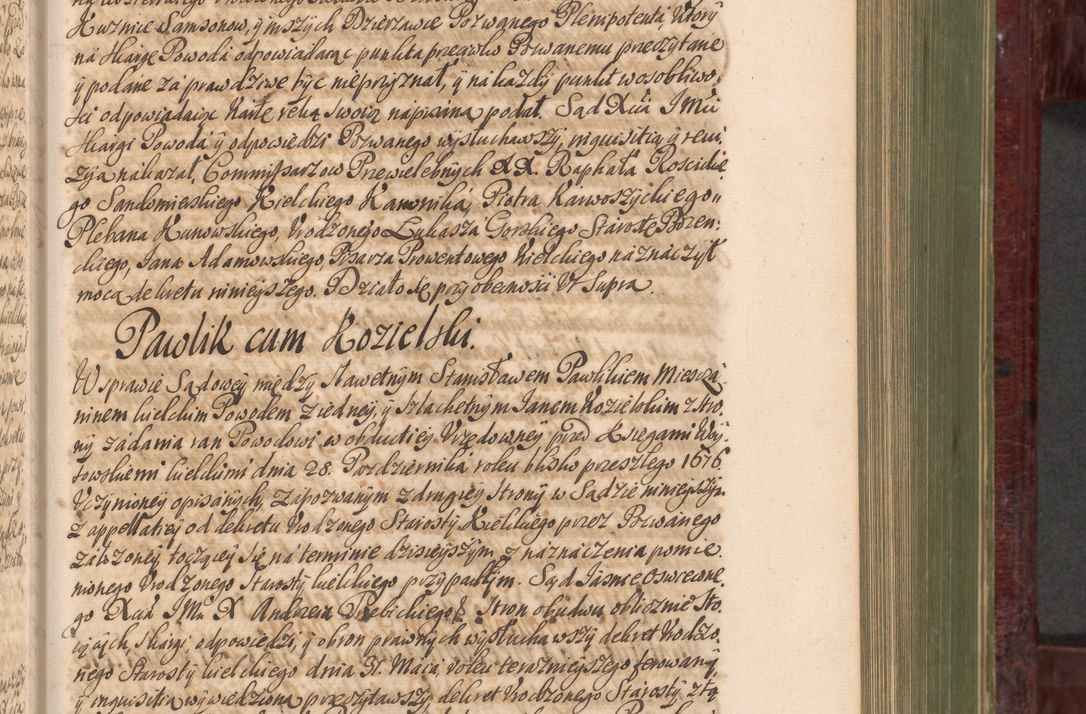 Kuznice Samsonow, y inszych Dzierzawie Pozwanego Plenipotenta ktory
na skargę Powoda odpowiadaiąc punkta przeciwko Pozwanemu przeczytane
y podane za prawdziwe bydz nieprzyznał, y na każdy punkt w osobliwo,
sci odpowiadaiąc kartę ręką swoią napisaną podał. Sąd Xcia JMci
skargi Powoda y odpowiedzi Pozwanego wysłuchawszy, inquisitią y rewi,
zyią nakazał, Commissarzow Przewielebnych XX. Raphała Roscickie
go Sandomirskiego Kielckiego Kanonika, Piotra Karwoszyckiego
Plebana Kunowskiego, Urodzonego Łukasza Gorskiego Starostę Bozen,
ckiego, Jana Adamowskiego, Pisarza Prowentowego Kielckiego naznaczył
mocą dekretu ninieyszego. Działo się przy obecnosci Ut Supra.
Pawlik cum Kozielski.
W sprawie Sądowey między sławetnym Stanisławem Pawlikiem Miescza,
ninem kielckim Powodem z iedney, y szlachetnym Janem Kozielskim z stro,
ny zadania ran Powodowi w obductiey Urzędowney przed Księgami Woy,
towskiemi kielckimi dnia 28. Pazdziernika roku blisko przeszłego 1676
Uczynioney opisanych, zapozwanym z drugiey strony w Sądzie ninieyszym
z appellatiey od dekretu Urodzonego Starosty Kielckiego przez Pozwanego
założoney toczącey się na terminie dzisieyszym z naznaczenia pomie
nionego Urodzonego Starosty kielckiego przypadłym. Sąd Jasnie Oswiecone,
go Xcia JMci X Andrzeia Trebickiego stron obudwu oblicznie sto,
iących, skargi, odpowiedzi, y obron prawnych wysłuchawszy dekret Urodzo,
nego Starosty kielckiego dnia 31. Maia roku teraznieyszego ferowany,
y inquisitią wywiedzioną przeczytawszy, dekret Urodzonego Starosty, z tą